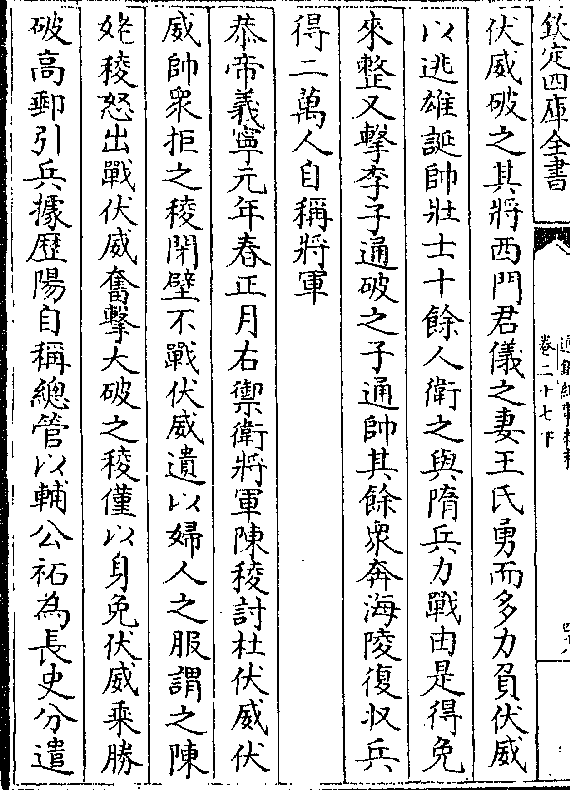 欽定四庫全書
卷二十七下
伏威破之其將西門君儀之妻王氏勇而多力負伏威
以逃雄誕帥壯士十餘人衛之與隋兵力戰由是得免
來整又擊李子通破之子通帥其餘衆奔海陵復收兵
得二萬人自稱將軍
恭帝義寧元年春正月右禦衛將軍陳稜討杜伏威伏
威帥衆拒之稜閉壁不戰伏威遺以婦人之服謂之陳
姥稜怒出戰伏威奮擊大破之稜僅以身免伏威乘勝
破高郵引兵據歷陽自稱總管以輔公祏為長史分遣